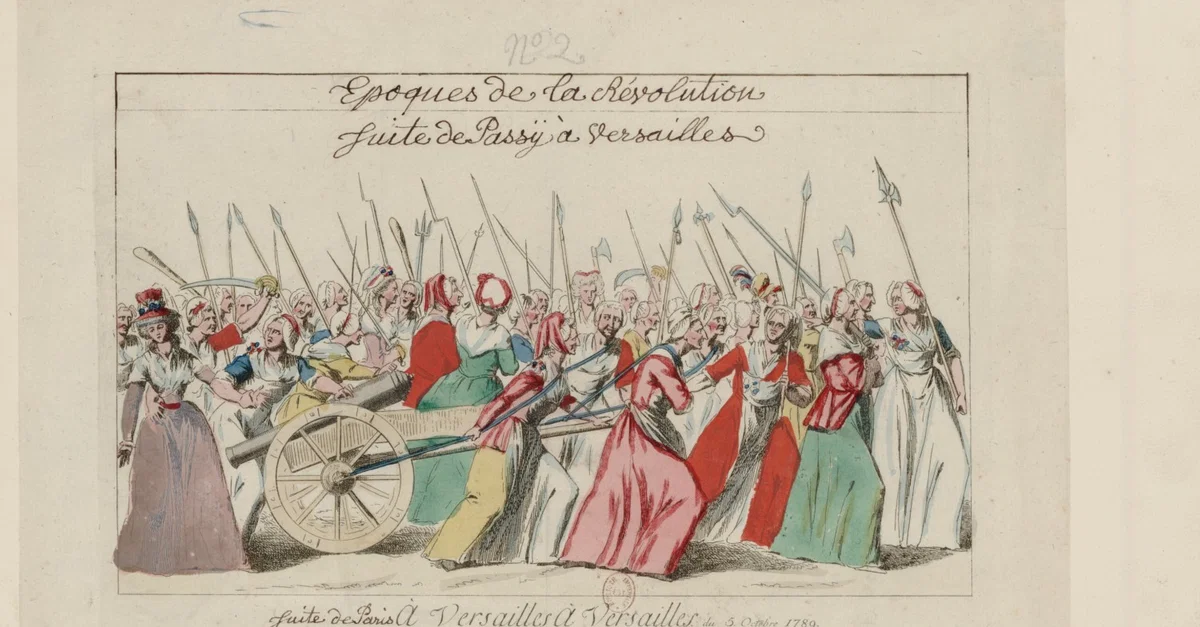 No 2.
Epoques de la Révolution
suite de Passÿ à Versailles
suite de Paris À Versailles À Versailles. du 5 Octobre 1789.